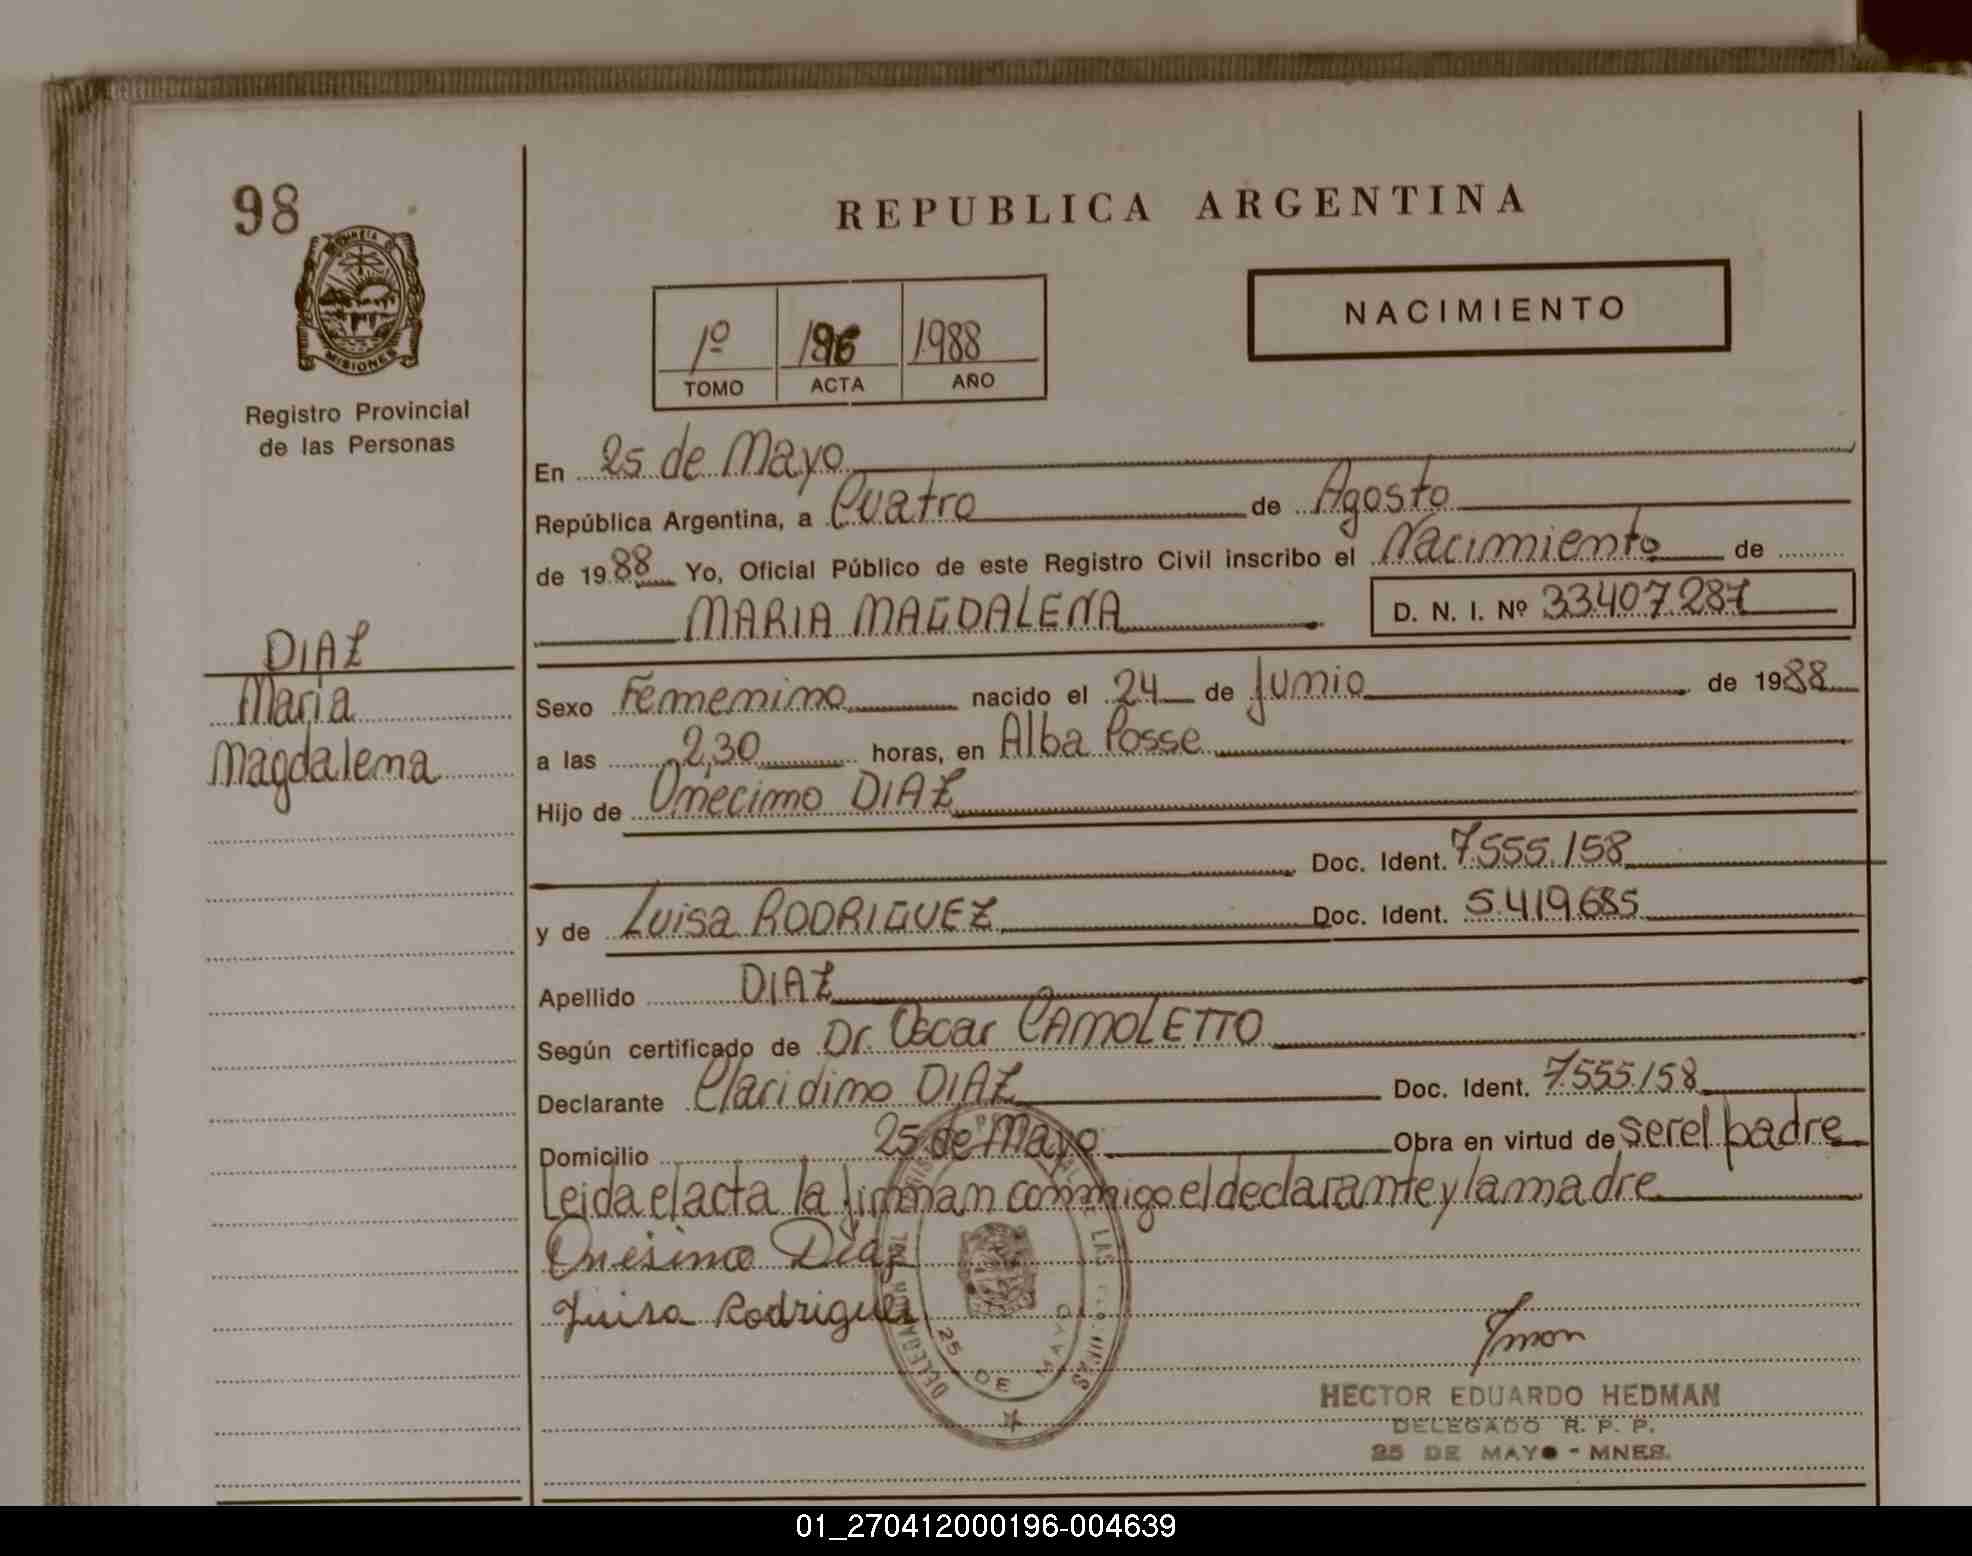 98
REPUBLICA ARGENTINA
MISIONES
NACIMIENTO
1º 196 1988
TOMO ACTA AÑO
Registro Provincial
de las Personas
En 25 de Mayo
República Argentina, a Cuatro de Agosto
de 1988 Yo, Oficial Público de este Registro Civil inscribo el Nacimiento de
MARIA MAGDALENA D. N. I. Nº 33407287
DIAZ
Maria
Magdalena
Sexo Femenino nacido el 24 de Junio de 1988
a las 2,30 horas, en Alba Posse
Hijo de Onecimo DIAZ
Doc. Ident. 7555.158
y de Luisa RODRIGUEZ Doc. Ident. 5.419.685
Apellido DIAZ
Según certificado de Dr. Oscar CAMOLETTO
Declarante Claridimo DIAZ Doc. Ident. 7555158
Domicilio 25 de Mayo Obra en virtud de ser el padre
Leida el acta la firman conmigo el declarante y la madre
Onésimo Diaz
Luisa Rodriguez
25 DE MAYO
HECTOR EDUARDO HEDMAN
DELEGADO R. P. P.
25 DE MAYO - MNES.
01_270412000196-004639